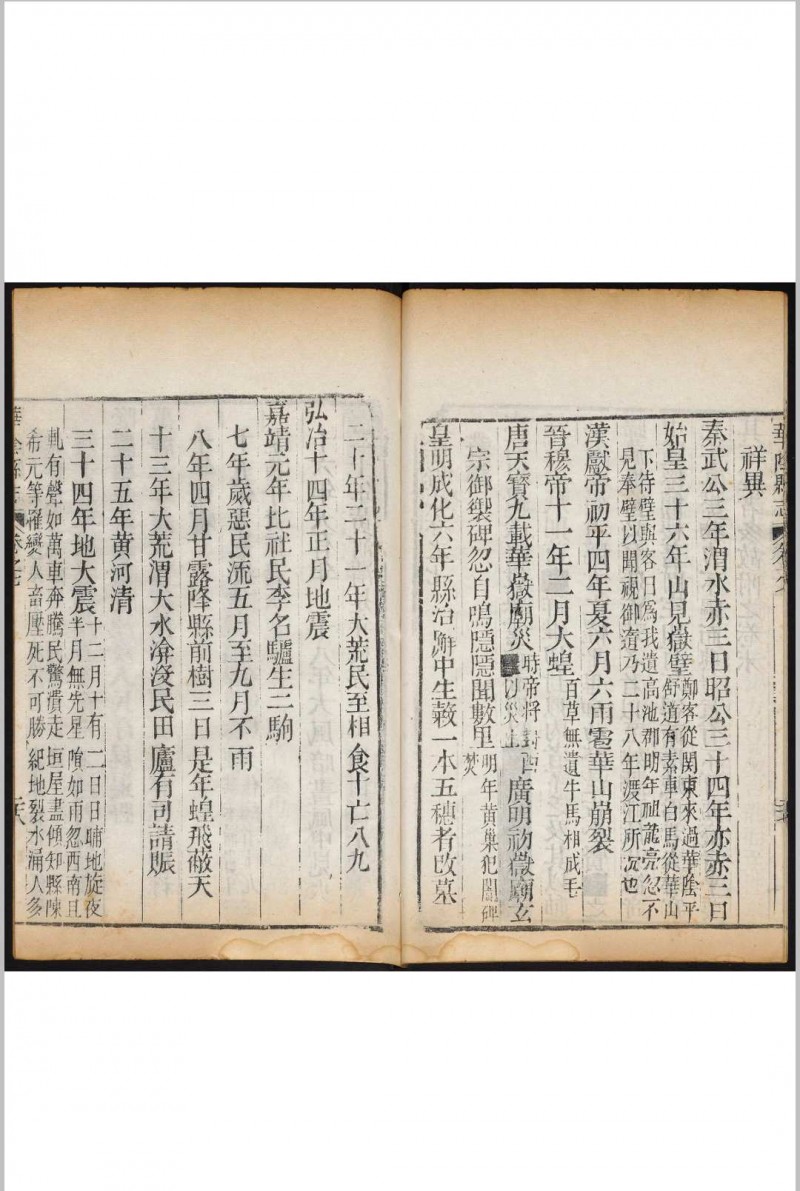 華陰縣志
祥異
秦武公三年渭水赤三日昭公三十四年亦赤三日
始皇三十六年山見嶽璧鄭客從關東來過華陰平
舒道有素車白馬從華山
下待璧與客曰為我遺高池郡明年祖龍亮忽不
見奉璧以聞視御道乃二十八年渡江所沉也
漢獻帝初平四年夏六月六雨雹華山崩裂
晉穆帝十一年二月大蝗百草無遺牛馬相戒毛
唐天寶九載華嶽廟災時帝將封西
以災止
廣明初嶽廟玄
宗御製碑忽自鳴隱隱聞數里明年黃巢犯闕碑
焚
皇明成化六年縣治廨中生穀一本五穗者改墓
二十年二十一年大荒民至相食十亡八九
弘治十四年正月地震
嘉靖元年比社民李名驢生二駒
七年歲惡民流五月至九月不雨
八年四月甘露降縣前樹三日是年蝗飛蔽天
十三年大荒渭大水渰沒民田廬有司請賑
二十五年黃河清
三十四年地大震十二月十有二日日晡地旋夜
半月無光星隕如雨忽西南且
軋有聲如萬車奔騰民驚潰走垣屋盡傾知縣陳
希元等罹變人畜壓死不可勝紀地裂水涌人多
華陰縣志
卷之七